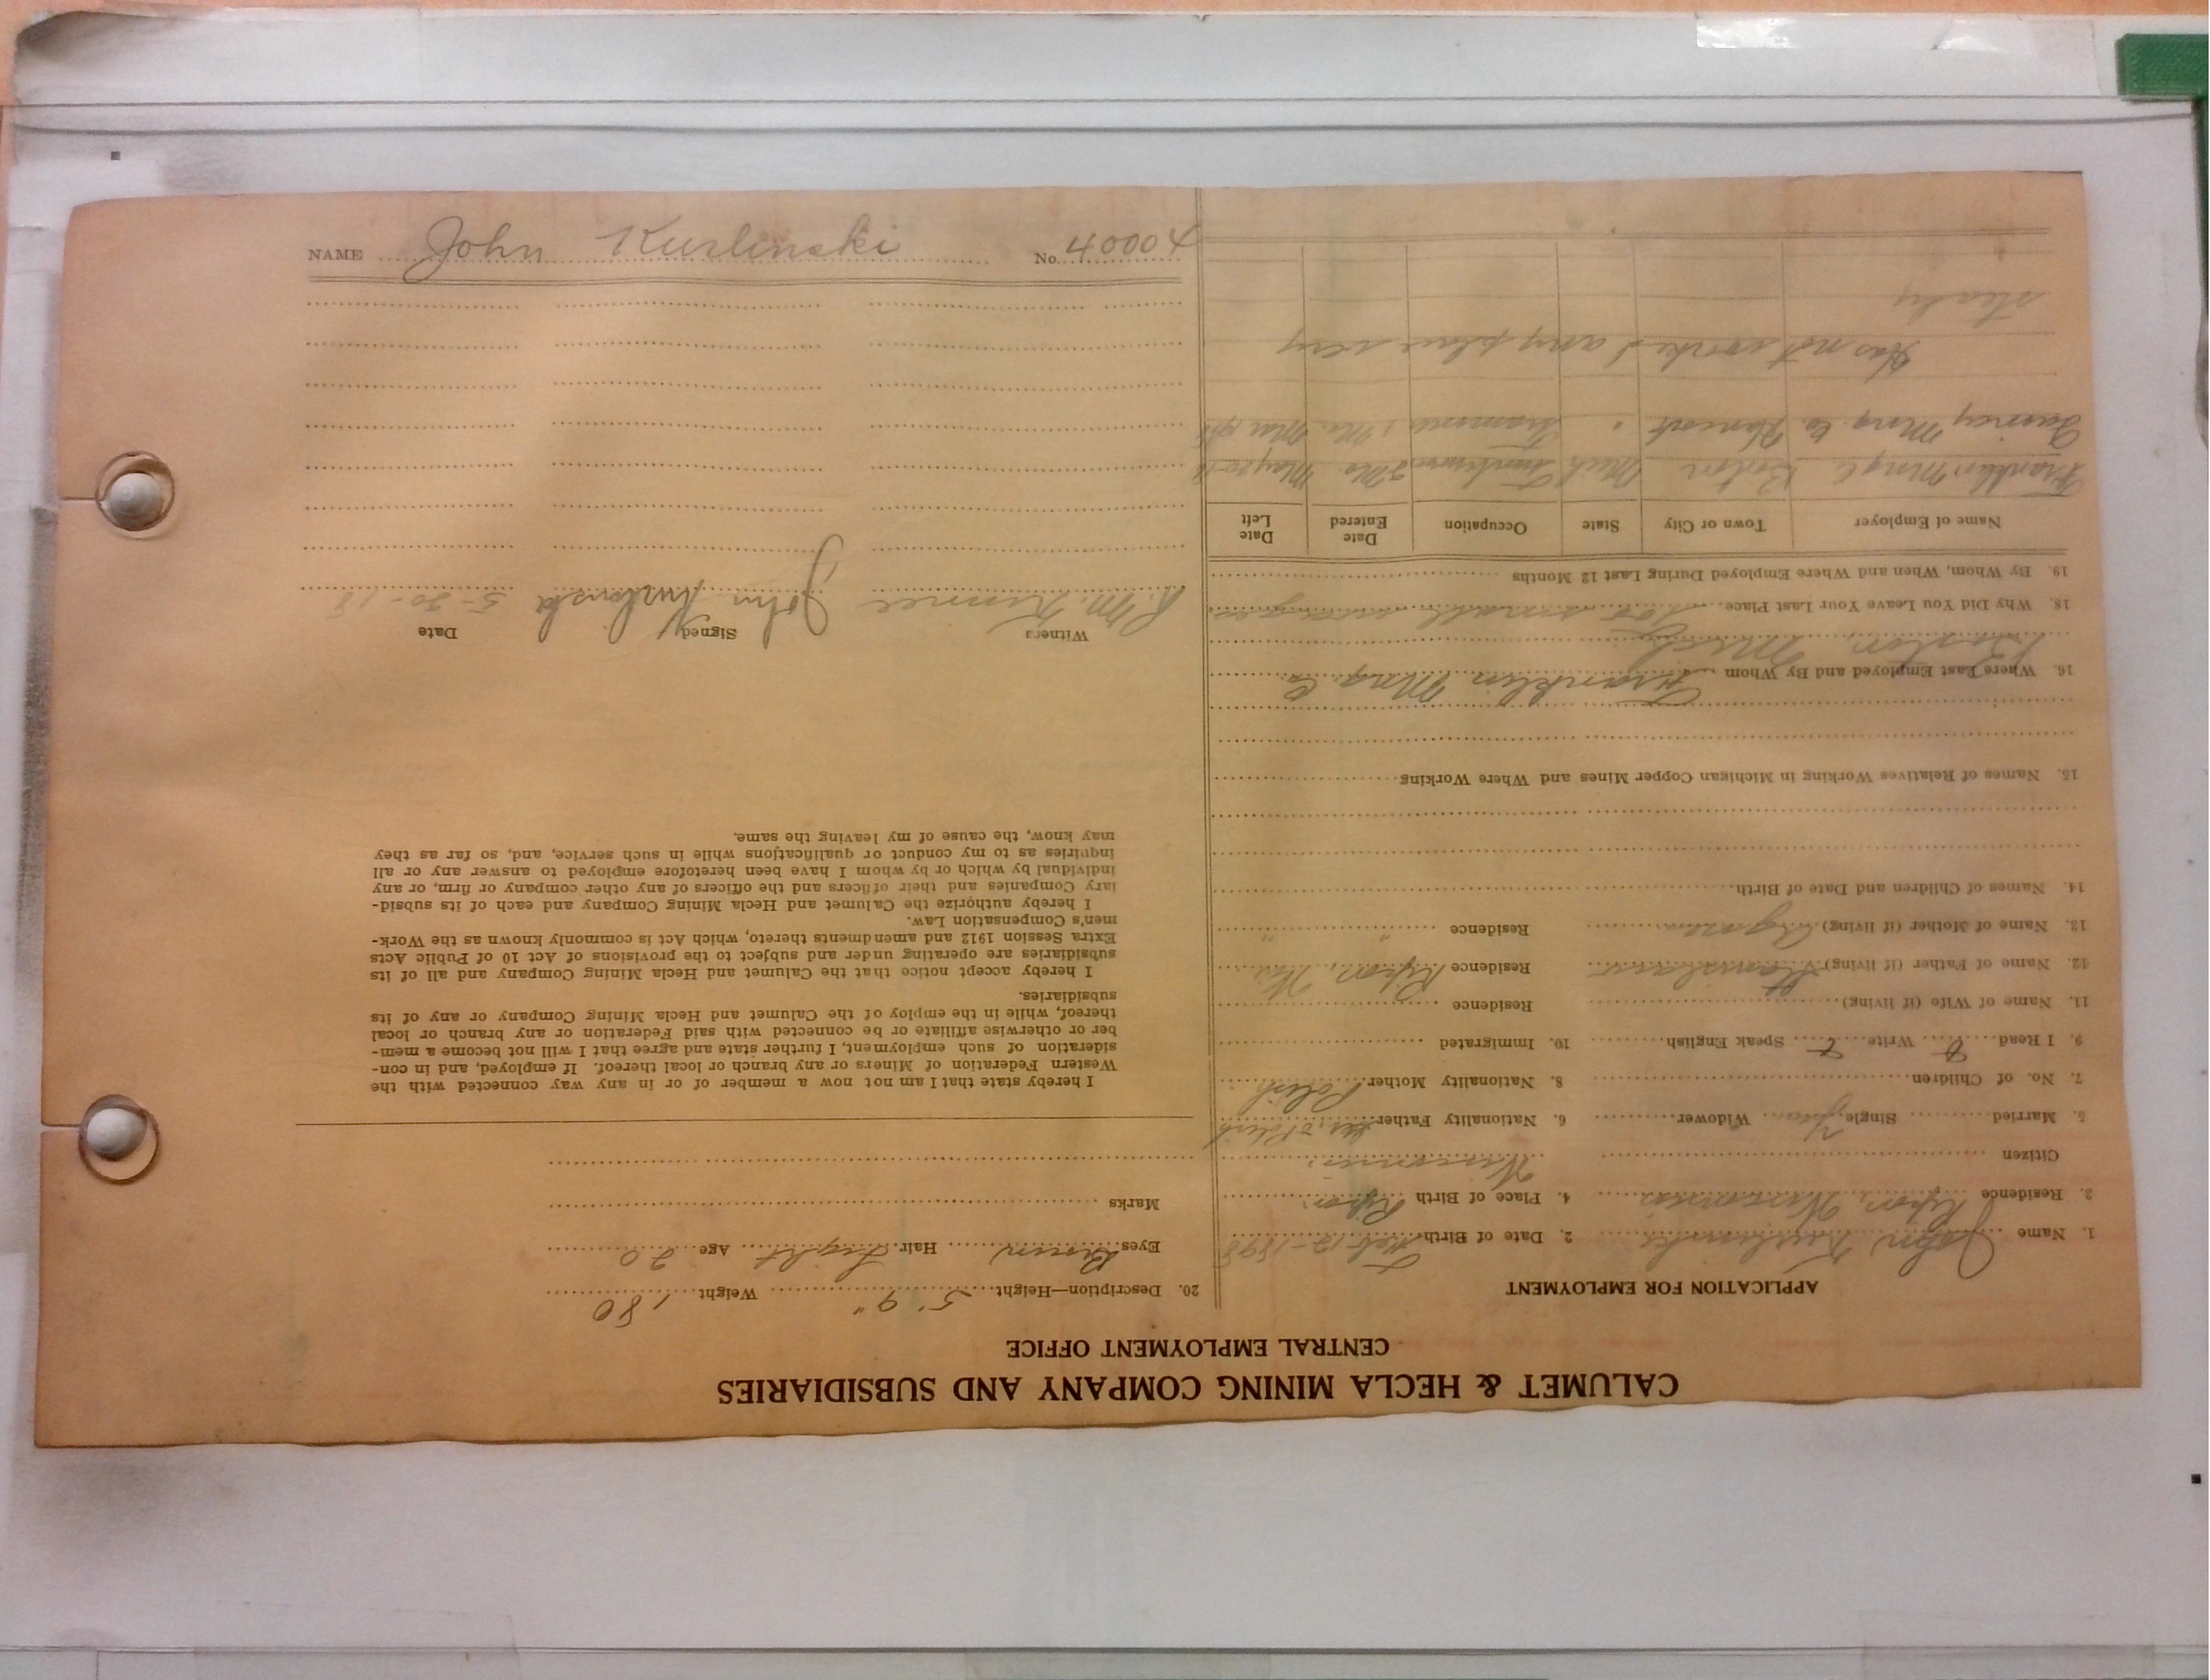 CALUMET & HECLA MINING COMPANY AND SUBSIDIARIES
CENTRAL EMPLOYMENT OFFICE
APPLICATION FOR EMPLOYMENT
1. Name John Kurlinski 2. Date of Birth Feb. 12-1898
3. Residence Ripon, Wisconsin 4. Place of Birth Ripon,
Citizen Wisconsin
5. Married Single Yes Widower 6. Nationality Father Polish
7. No. of Children 8. Nationality Mother Polish
9. I Read Write Speak English 10. Immigrated
11. Name of Wife (if living) Residence
12. Name of Father (if living) Residence Ripon, Wis
13. Name of Mother (if living) Residence " "
14. Names of Children and Date of Birth
15. Names of Relatives Working in Michigan Copper Mines and Where Working
16. Where Last Employed and By Whom Franklin Mng. Co.
Boston, Mich
18. Why Did You Leave Your Last Place too small wages
19. By Whom, When and Where Employed During Last 12 Months
Name of Employer Town or City State Occupation Date Entered Date Left
Franklin Mng Co Boston Mich 2 Mo May 20-18
Quincy Mng. Co Hancock " Trammer 1 Mo. Mar
Has not worked any place very
steady
20. Description—Height 5' 9" Weight 180
Eyes Brown Hair Light Age 20
Marks
I hereby state that I am not now a member of or in any way connected with the
Western Federation of Miners or any branch or local thereof. If employed, and in con-
sideration of such employment, I further state and agree that I will not become a mem-
ber or otherwise affiliate or be connected with said Federation or any branch or local
thereof, while in the employ of the Calumet and Hecla Mining Company or any of its
subsidiaries.
I hereby accept notice that the Calumet and Hecla Mining Company and all of its
subsidiaries are operating under and subject to the provisions of Act 10 of Public Acts
Extra Session 1912 and amendments thereto, which Act is commonly known as the Work-
men's Compensation Law.
I hereby authorize the Calumet and Hecla Mining Company and each of its subsid-
iary Companies and their officers and the officers of any other company or firm, or any
individual by which or by whom I have been heretofore employed to answer any or all
inquiries as to my conduct or qualifications while in such service, and, so far as they
may know, the cause of my leaving the same.
Witness Signed Date
R. M. John Kurlinski 5-20-18
NAME John Kurlinski No. 40004